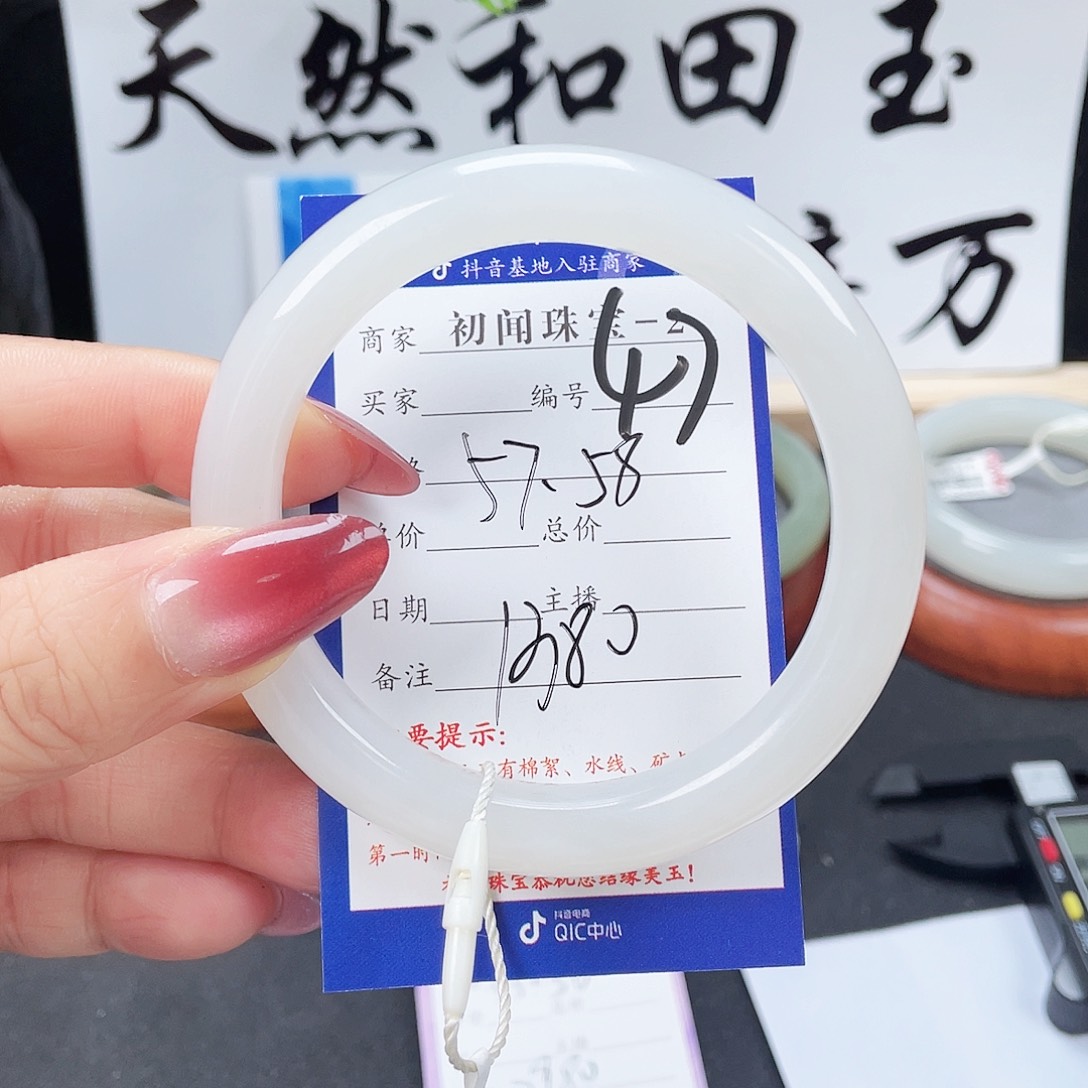 天然和田玉
万
抖音基地入驻商家
商家 初闻珠宝-2
买家 编号
57.58
价 总价
日期 主播
1380
备注
要提示:
有棉絮、水线、矿
第一时
珠宝恭祝您结缘美玉!
抖音电商
QIC中心